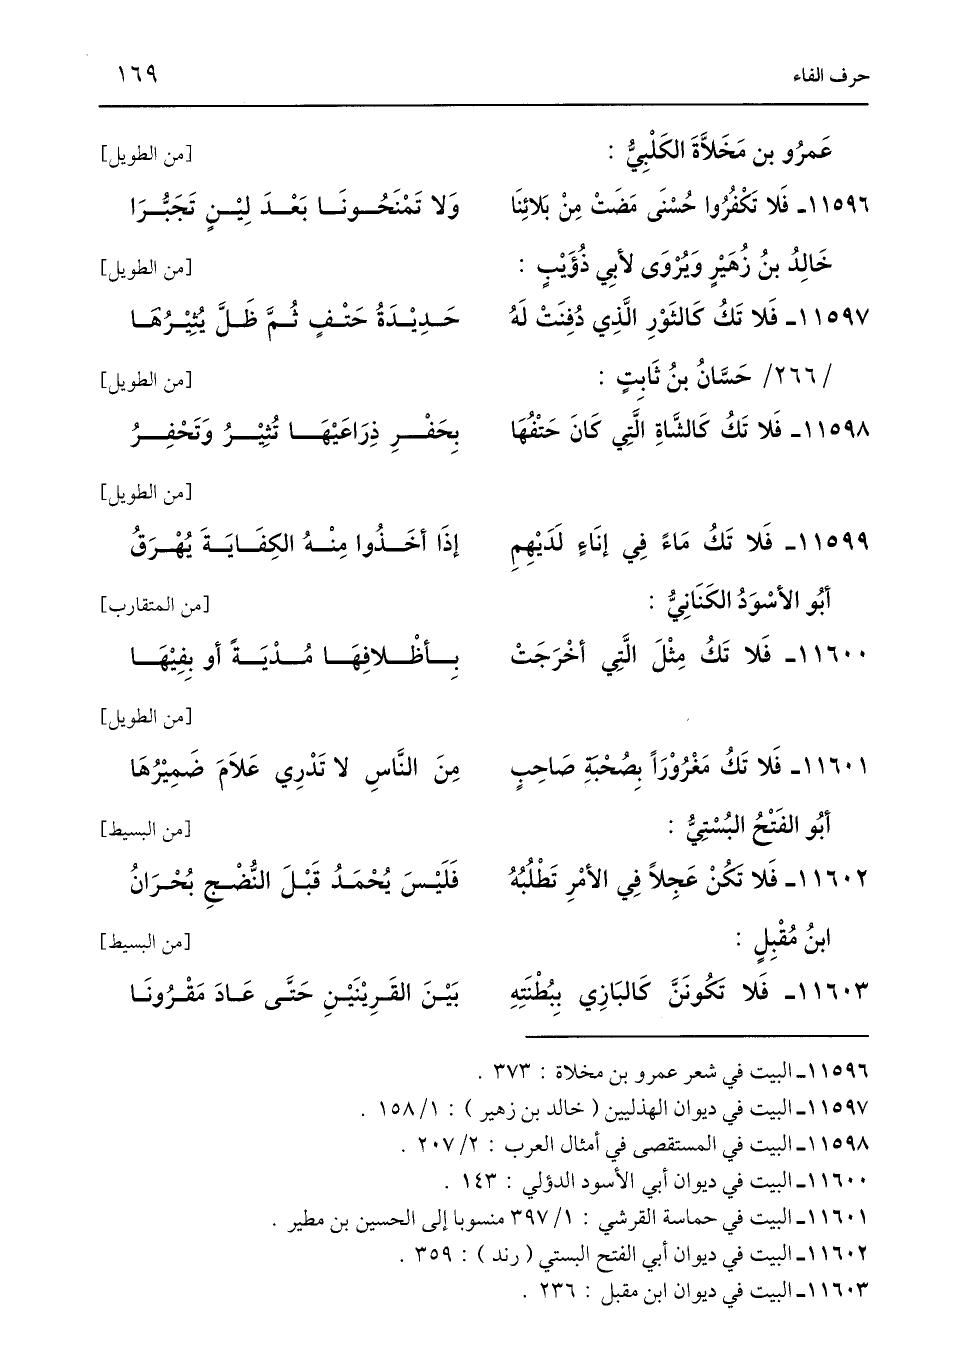 حرف الفاء ١٦٩
عَمرُو بن مَخَلاَّةَ الكَلْبِيُّ : [من الطويل]
١١٥٩٦ـ فَلا تَكْفُرُوا حُسْنَى مَضَتْ مِنْ بَلائِنَا وَلا تَمْنَحُونَا بَعْدَ لِيْنٍ تَجَبُّرَا
خَالِدُ بنُ زُهَيْرٍ وَيُرْوَى لأبِي ذُؤَيْبٍ : [من الطويل]
١١٥٩٧ـ فَلا تَكُ كَالثَوْرِ الَّذِي دُفِنَتْ لَهُ حَدِيْدَةُ حَتْفٍ ثُمَّ ظَلَّ يُثِيْرُهَا
/٢٦٦/ حَسَّانُ بنُ ثَابِتٍ : [من الطويل]
١١٥٩٨ـ فَلا تَكُ كَالشَّاةِ الَّتِي كَانَ حَتْفُهَا بِحَفْرِ ذِرَاعَيْهَا تُثِيْرُ وَتَحْفِرُ
[من الطويل]
١١٥٩٩ـ فَلا تَكُ مَاءً فِي إنَاءٍ لَدَيْهِمِ إذَا أخَذُوا مِنْهُ الكِفَايَةَ يُهْرَقُ
أبُو الأسْوَدُ الكَنَانِيُّ : [من المتقارب]
١١٦٠٠ـ فَلا تَكُ مِثْلَ الَّتِي أخْرَجَتْ بِأظْلافِهَا مُدْيَةً أو بِفِيْهَا
[من الطويل]
١١٦٠١ـ فَلا تَكُ مَغْرُوْرَاً بِصُحْبَةِ صَاحِبٍ مِنَ النَّاسِ لا تَدْرِي عَلامَ ضَمِيْرُهَا
أبُو الفَتْحُ البُسْتِيُّ : [من البسيط]
١١٦٠٢ـ فَلا تَكُنْ عَجِلاً فِي الأمْرِ تَطْلُبُهُ فَلَيْسَ يُحْمَدُ قَبْلَ النُّضْجِ بُحْرَانُ
ابنُ مُقْبِلٍ : [من البسيط]
١١٦٠٣ـ فَلا تَكُونَنَّ كَالبَازِي بِبُطْنَتِهِ بَيْنَ القَرِيْنَيْنِ حَتَّى عَادَ مَقْرُونَا
١١٥٩٦ـ البيت في شعر عمرو بن مخلاة : ٣٧٣ .
١١٥٩٧ـ البيت في ديوان الهذليين ( خالد بن زهير ) : ١/ ١٥٨ .
١١٥٩٨ـ البيت في المستقصى في أمثال العرب : ٢/ ٢٠٧ .
١١٦٠٠ـ البيت في ديوان أبي الأسود الدؤلي : ١٤٣ .
١١٦٠١ـ البيت في حماسة القرشي : ١/ ٣٩٧ منسوبا إلى الحسين بن مطير .
١١٦٠٢ـ البيت في ديوان أبي الفتح البستي ( رند ) : ٣٥٩ .
١١٦٠٣ـ البيت في ديوان ابن مقبل : ٢٣٦ .